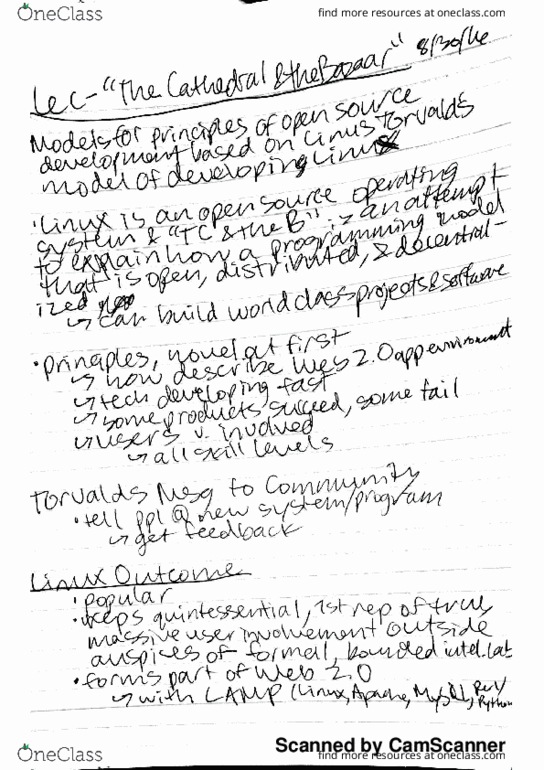 OneClass
find more resources at oneclass.com
Lec- "The Cathedral & the Bazaar" 8/30/16
Models for principles of open source
development based on Linus Torvalds
model of developing Linux
· Linux is an open source operating
system & "TC & the B" is an attempt
to explain how a programming model
that is open, distributed, & decentral-
ized
↳ can build world class projects & software
· principles, novel at first
↳ now describe Web 2.0 app environment
↳ tech developing fast
↳ some products succeed, some fail
↳ users v. involved
↳ all skill levels
Torvalds Msg to Community
· tell ppl @ new system/program
↳ get feedback
Linux Outcome
· popular
· quintessential, 1st rep of true,
massive user involvement outside
auspices of formal, bounded intel. lab
· forms part of Web 2.0
↳ with LAMP (Linux, Apache, MySQL, Perl/
Python
Scanned by CamScanner
OneClass
find more resources at oneclass.com